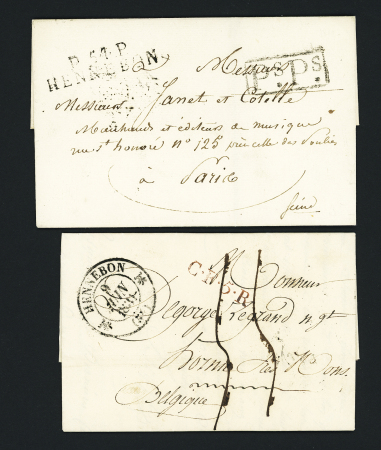 P.51.P.
HENNEBON
P.S.P.S.
Messieurs
Messieurs Janet et Cotelle
Marchands et éditeurs de musique
rue St honoré N° 125 près celle des Poulies
à Paris
Seine
HENNEBON
9
(54)
C.F.5.R.
Monsieur
Degorge Legrand ngt
Hornu Près Mons
Belgique